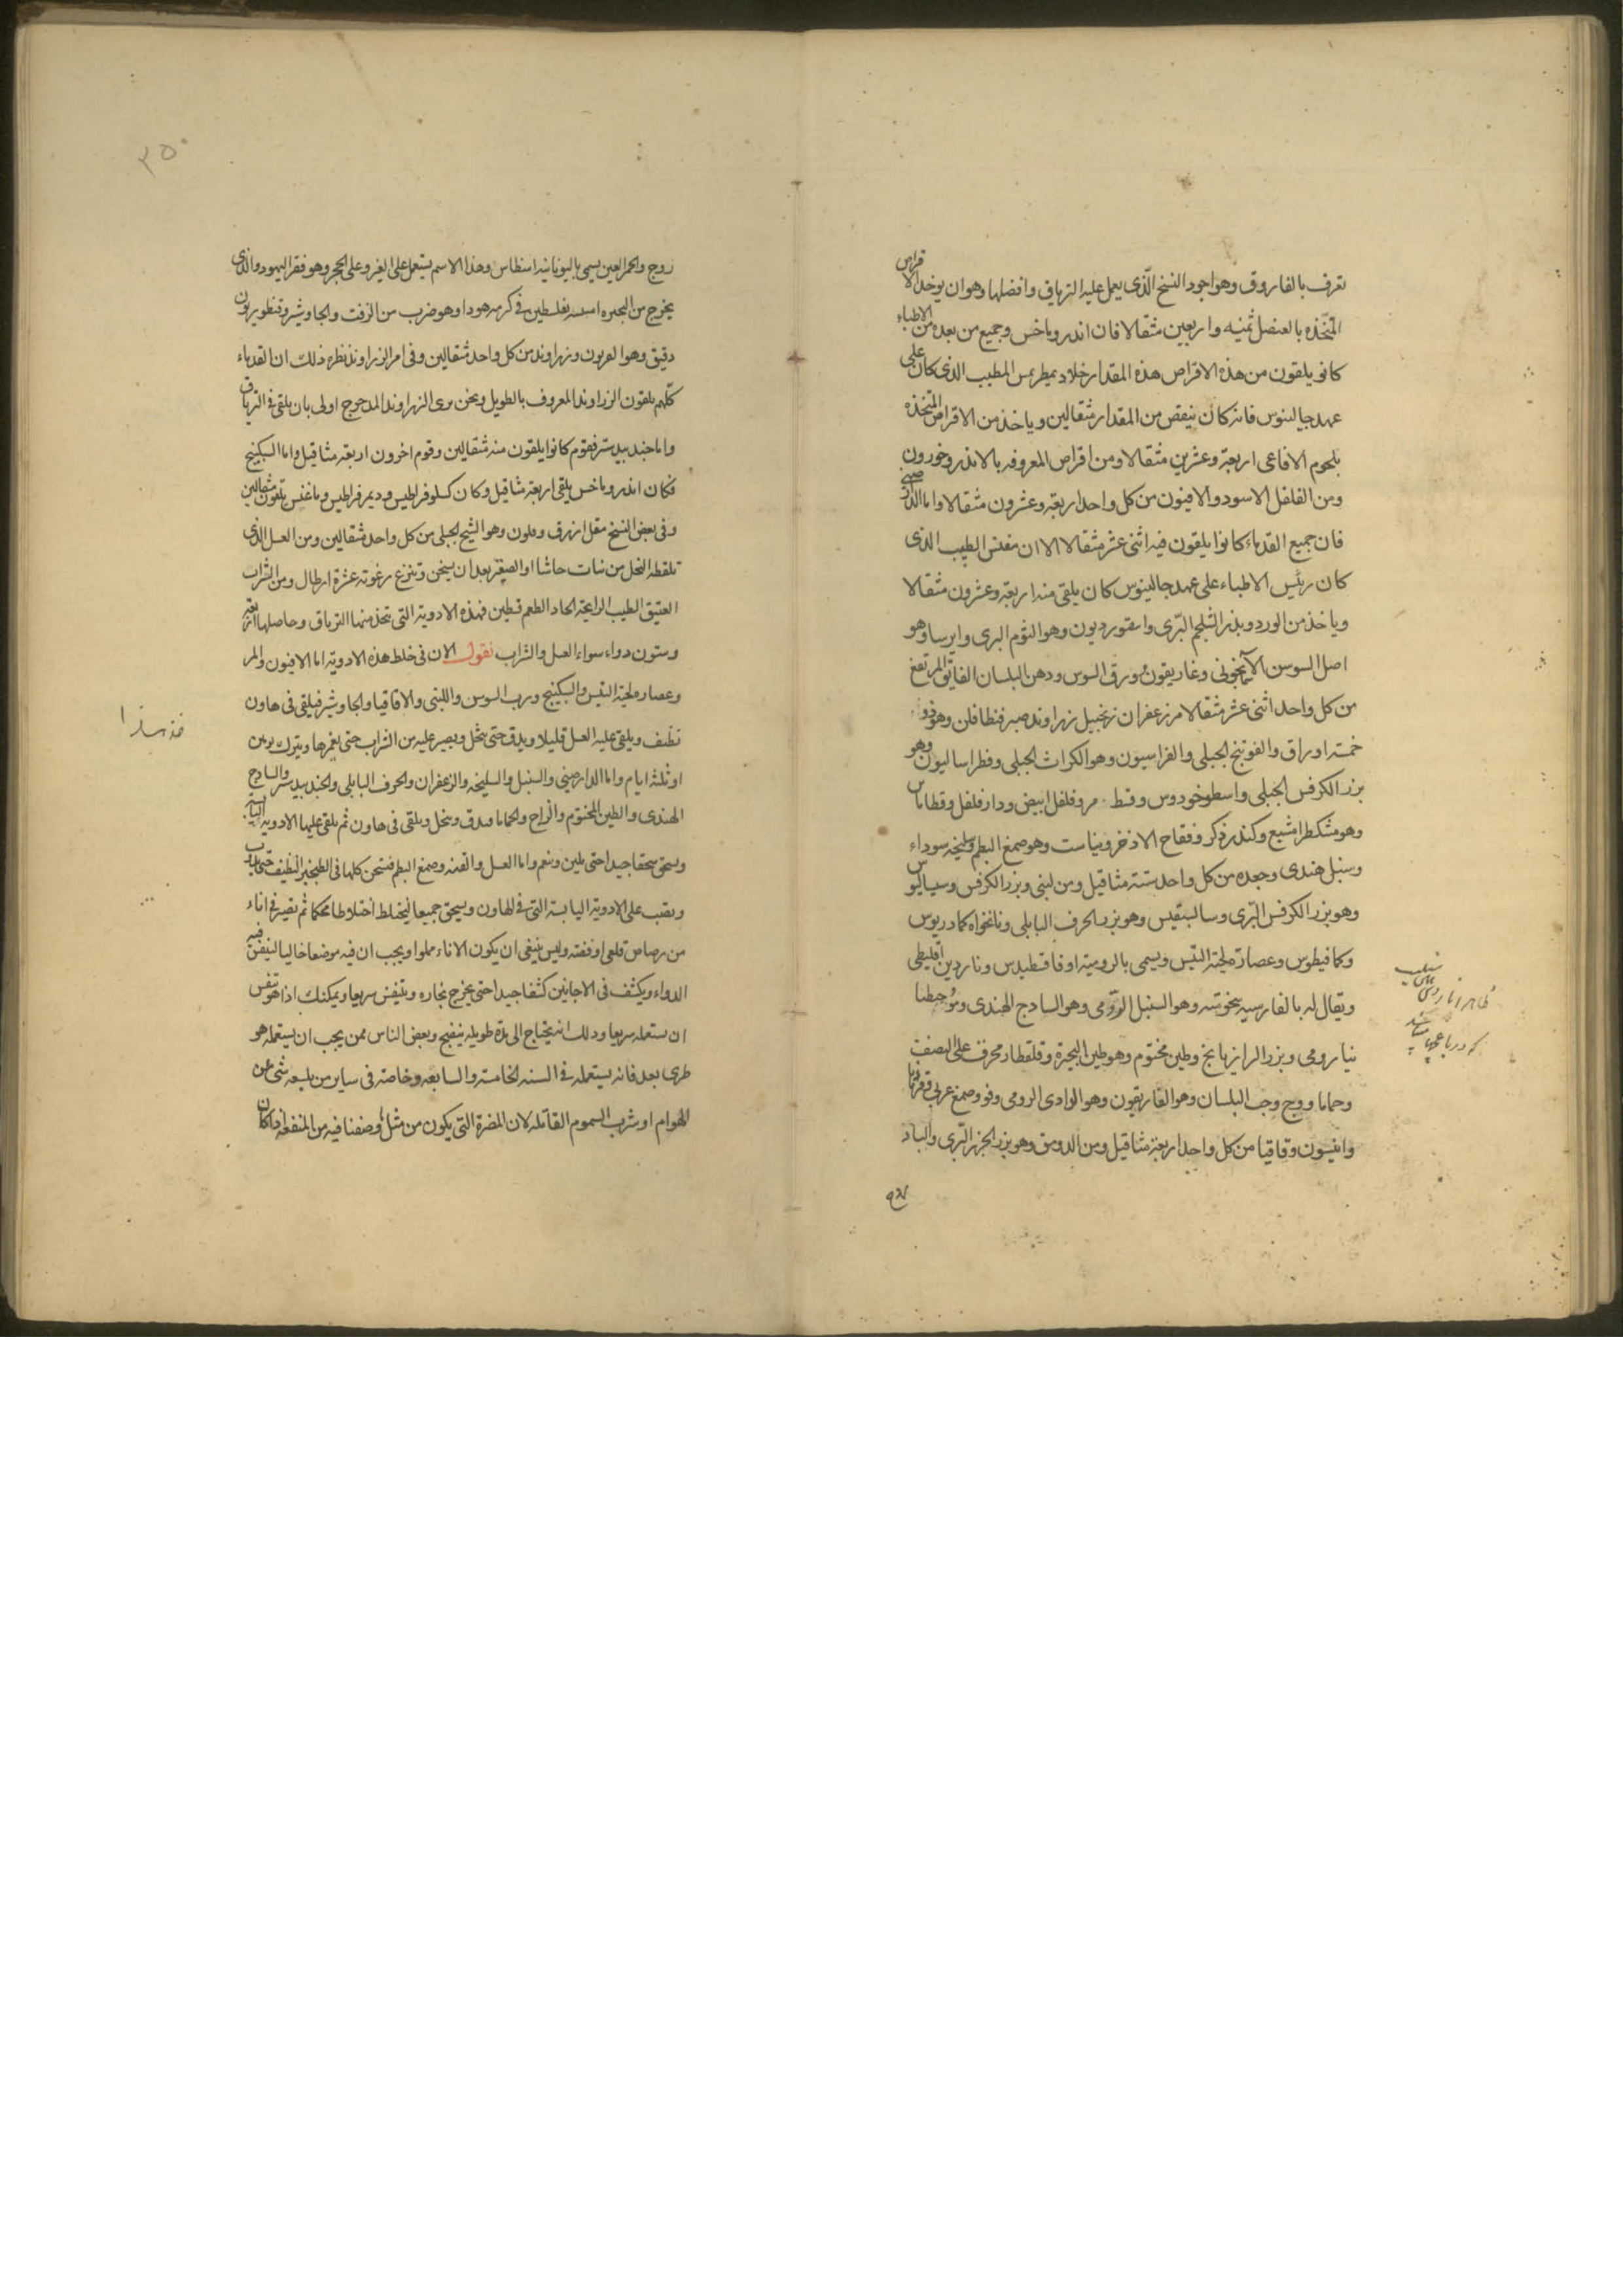 تعرف بالفاروق وهو اجود النسخ الّذى يعمل عليه الترياق وافضلها وهو ان يوخذ الاقراص
المتّخذه بالعنصل ثمنيه واربعين مثقالا فان اندروماخس وجميع من بعده من الاطباء
كانو يلقون من هذه الاقراص هذه المقدار خلا ديمطريس المطبب الذى كان على
عهد جالينوس فانه كان ينقص من المقدار مثقالين وياخذ من الاقراص المتخذه
بلحوم الافاعى اربعة وعشرين مثقالا ومن اقراص المعروفه بالاندروخورون
ومن الفلفل الاسود والافيون من كل واحد اربعة وعشرون مثقالا واما الدارصينى
فان جميع القدماء كانوا يلقون فيه اثنى عشر مثقالا الا ان مغنس الطبيب الذى
كان رئيس الاطباء على عهد جالينوس كان يلقى منه اربعة وعشرون مثقالا
وياخذ من الورد وبذر الشلجم البّرى واسقورديون وهو الثوم البرى وايرسا وهو
اصل السوسن الآسمآنجونى وغاريقون ورق السوس ودهن البلسان الفايق المرتفع
من كل واحد اثنى عشر مثقالا مر زعفران زنجبيل زراوند صبر فنطافلن وهو ذو
خمسة اوراق والفوتنج الجبلى والفراسيون وهو الكراث الجبلى وفطراساليون وهو
بزر الكرفس الجبلى واسطوخودوس وقسط مر وفلفل ابيض ودار فلفل وقطاماس
وهو مشكطرامشيع وكندر ذكر وفقاح الاذخر ونياست وهو صمغ البطم وسليخه سوداء
وسنبل هندى وجعده من كل واحد ستة مثاقيل ومن لبنى وبزر الكرفس وسياليوس
وهو بزر الكرفس البّرى وسالسقيس وهو بزر الحرف البابلى ونانخواه كمادريوس
وكمافيطوس وعصارة لحية التيس ويسمى بالرومية اوفاقسطيدس وناردين اقليطى
ويقال له بالفارسيه بيخوشه وهو السنبل الرّومى وهو السادج الهندى وموُ جنطيا
نيا رومى وبزر الرازيانج وطين مختوم وهو طين البحيرة وقلقطار محرق على النصف
وحماما ووج وحب البلسان وهو الفاريقون وهو الوادى الرومى وفو وصمغ عربى وقردمانا
وانيسون وقاقيا من كل واحد اربعة مثاقيل ومن الدوقو وهو بزر الجزر البّرى والباد
روج والحمر العين يسمى باليونانيه اسفطاس وهذا الاسم يستعمل على الغير وعلى الحجر وهو فقر اليهود والذى
يخرج من البحيره بفلسطين فى كرم يهودا وهو ضرب من الزفت والجاوشير وقنطوريون
دقيق وهو العربون وزراوند من كل واحد مثقالين وفى امر الزراوند نظره ذلك ان القدماء
كلّهم يلقون الزراوند المعروف بالطويل ونحن نرى الزراوند المدحرج اولى بان يلقى فى الترياق
واما جند بيدستر فقوم كانوا يلقون منه مثقالين وقوم اخرون اربعة مثاقيل واما السكبينج
فكان اندروماخس يلقى اربعة مثاقيل وكان كسلوفراطيس وديمرفراطيس وماغنس يلقون مثقالين
وفى بعض النسخ مقل ازرق وملون وهو الشيح الجبلى من كل واحد مثقالين ومن العسل الذى
تلقطه النحل من نبات حاشا او الصعتر بعد ان يسخن وتنزع رغوته عشرة ارطال ومن الشراب
العتيق الطيب الرايحة الحاد الطعم قسطين فهذه الادوية التى تتخذ منها الترياق وحاصلها اربعة
وستون دواء سواء العسل والشراب نقول الان فى خلط هذه الادوية اما الافيون والمر
وعصاره لحية التيس والسكبينج ورب السوس واللبنى والاقاقيا والجاوشير فيلقى فى هاون
نظيف ويلقى عليه العسل قليلا ويدق حتى ينحل ويصير عليه من الشراب حتى يغمرها ويترك يومين
او ثلثة ايام واما الدارصينى والسنبل والسليخه والزعفران والحرف البابلى والجند بيدستر والسادج
الهندى والطين المختوم والزاج والحماما فيدق وينخل ويلقى فى هاون ثم يلقى عليها الادوية اليابسة
ويسحق سحقا جيدا حتى يلين وينعم واما العسل والقنه وصمغ البطم فتسخن كلها فى الطنجير النظيف حتى يذوب
ويصب على الادوية اليابسة التى فى الهاون ويسحق جميعا ليختلط اختلاطا محكما ثم تصير فى اناء
من رصاص قلعى او فضة وليس ينبغى ان يكون الاناء مملوا ويجب ان فيه موضعا خاليا لتنفس فيه
الدواء ويكشف فى الاحايين كشفا جيدا حتى يخرج بخاره ويتنفس سريعا ويمكنك اذا هو تنفس
ان تستعمله سريعا وذلك انه يحتاج الى مدة طويله لينضج وبعض الناس ممن يجب ان يستعمله هو
طرى بعد فانه يستعمله فى السنه الخامسة والسابعه وخاصة فى ساير من يلسعه شى من
الهوام او شرب السموم القاتله لان المضرة التى يكون من مثل وصفنا فيه من المنفعة اذا كان